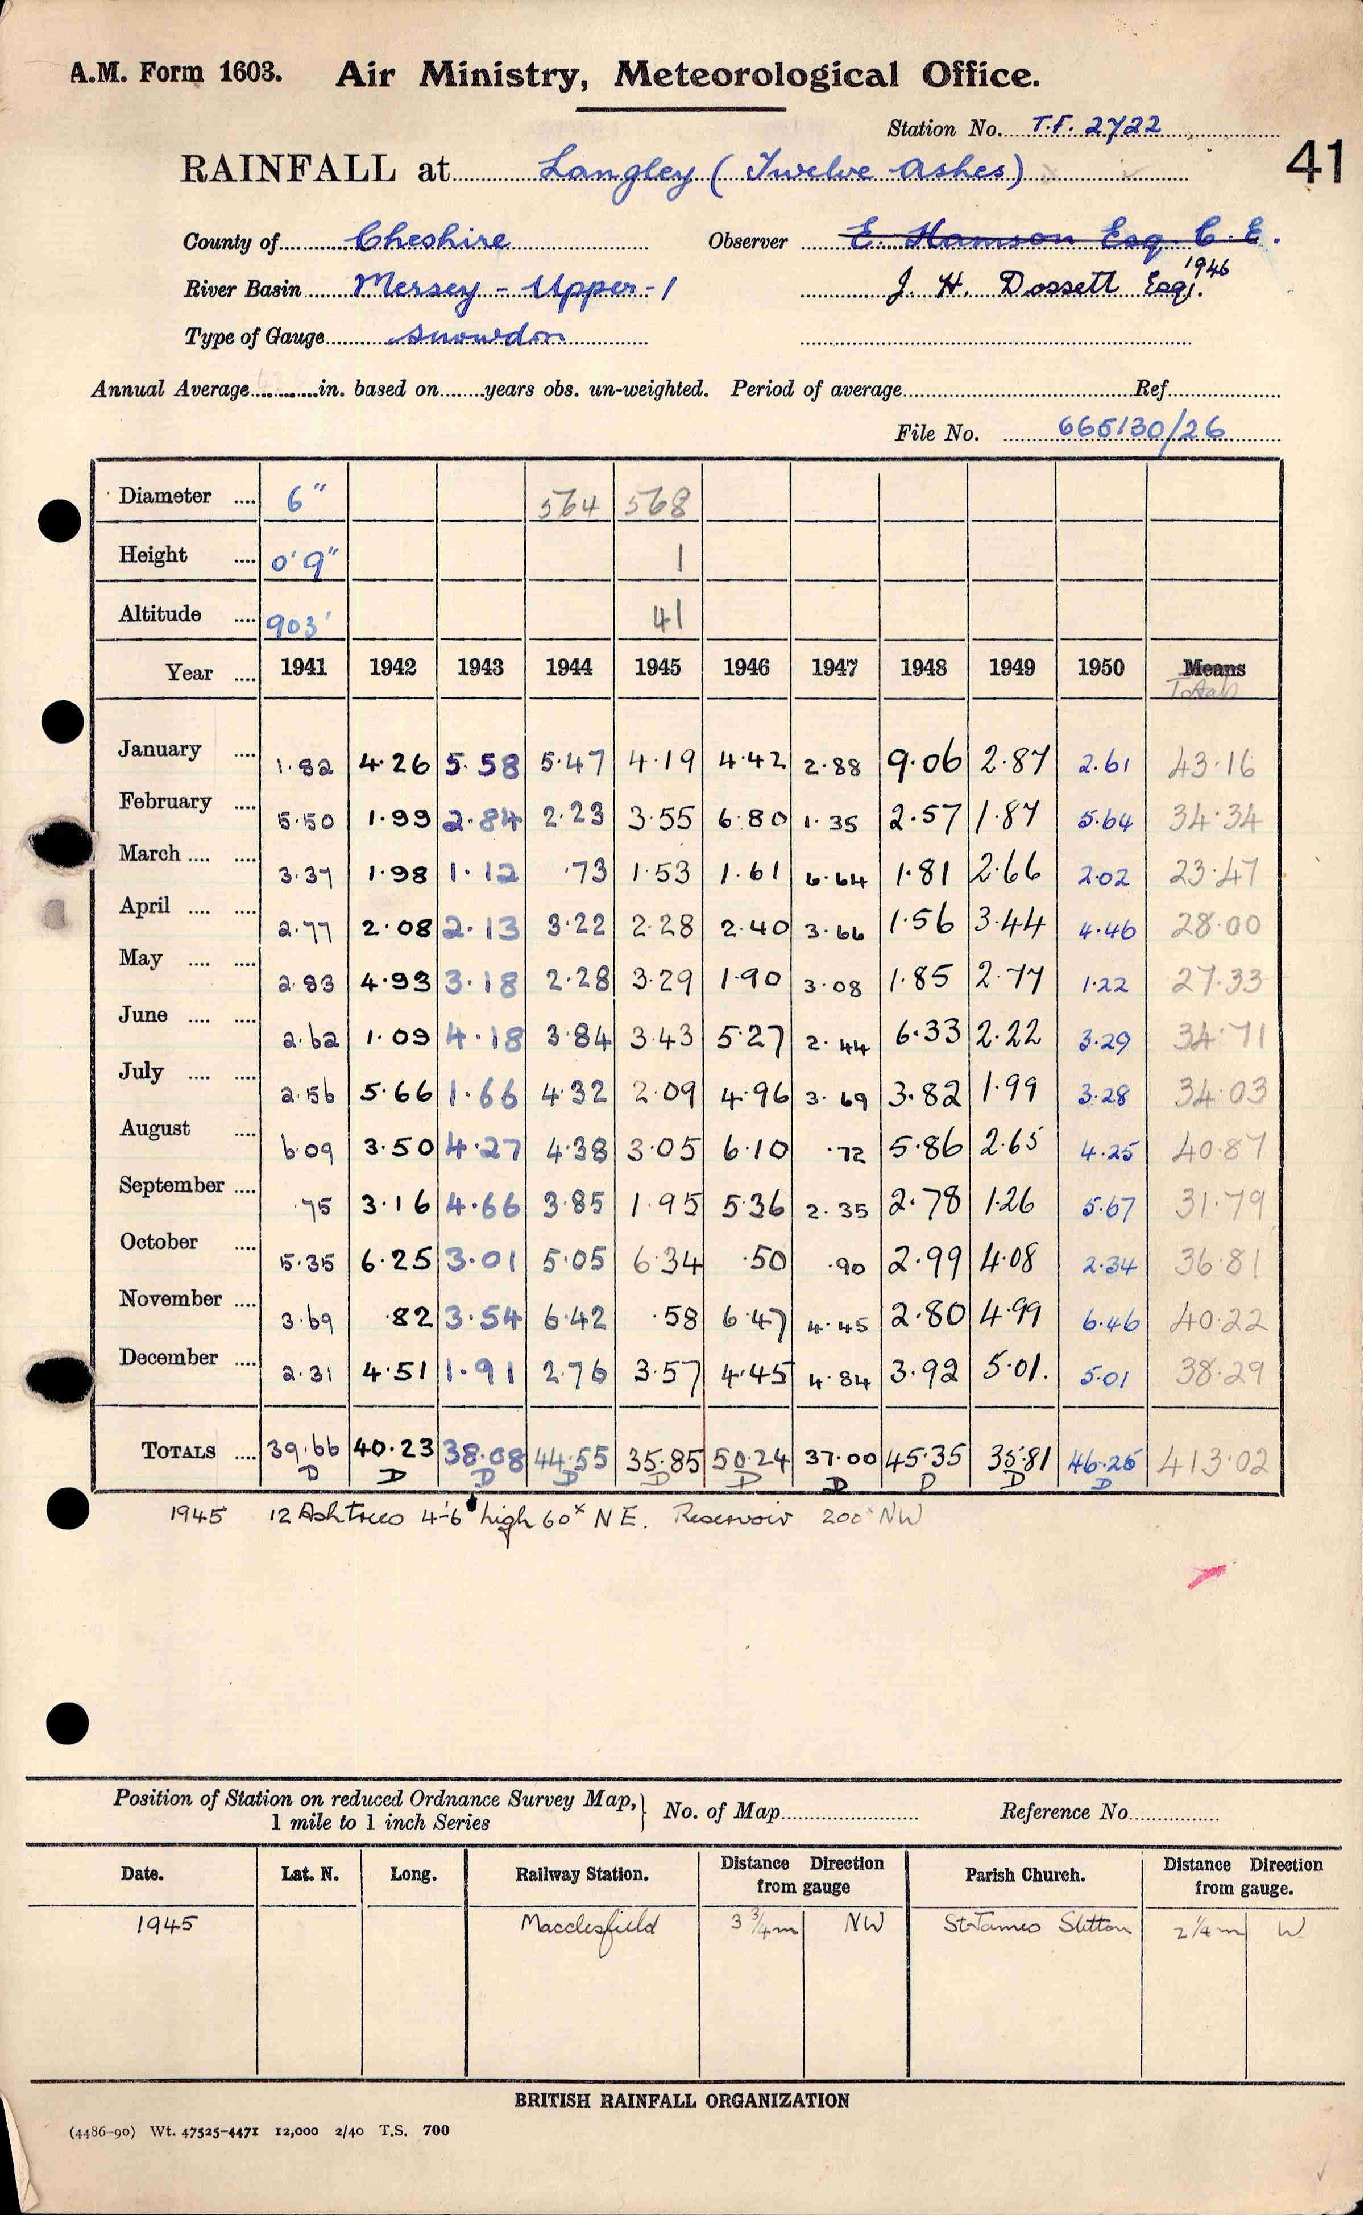 A.M. Form 1603. Air Ministry, Meteorological Office.
Station No. T.F. 2722
41
RAINFALL at Langley (Twelve Ashes)
County of Cheshire Observer E. Hamson Esq. C.E.
River Basin Mersey - Upper - 1 J. H. Dossett Esq. 1946
Type of Gauge Snowdon
Annual Average in. based on years obs. un-weighted. Period of average Ref.
File No. 665130/26
Diameter .... 6" 564 568
Height .... 0' 9" 1
Altitude .... 903' 41
Year .... 1941 1942 1943 1944 1945 1946 1947 1948 1949 1950 Means
Totals
January .... 1.82 4.26 5.58 5.47 4.19 4.42 2.88 9.06 2.87 2.61 43.16
February .... 5.50 1.99 2.84 2.23 3.55 6.80 1.35 2.57 1.87 5.64 34.34
March .... .... 3.37 1.98 1.12 .73 1.53 1.61 6.64 1.81 2.66 2.02 23.47
April .... .... 2.77 2.08 2.13 3.22 2.28 2.40 3.66 1.56 3.44 4.46 28.00
May .... .... 2.83 4.93 3.18 2.28 3.29 1.90 3.08 1.85 2.77 1.22 27.33
June .... .... 2.62 1.09 4.18 3.84 3.43 5.27 2.44 6.33 2.22 3.29 34.71
July .... .... 2.56 5.66 1.66 4.32 2.09 4.96 3.69 3.82 1.99 3.28 34.03
August .... 6.09 3.50 4.27 4.38 3.05 6.10 .72 5.86 2.65 4.25 40.87
September .... .75 3.16 4.66 3.85 1.95 5.36 2.35 2.78 1.26 5.67 31.79
October .... 5.35 6.25 3.01 5.05 6.34 .50 .90 2.99 4.08 2.34 36.81
November .... 3.69 .82 3.54 6.42 .58 6.47 4.45 2.80 4.99 6.46 40.22
December .... 2.31 4.51 1.91 2.76 3.57 4.45 4.84 3.92 5.01. 5.01 38.29
TOTALS .... 39.66 40.23 38.08 44.55 35.85 50.24 37.00 45.35 35.81 46.25 413.02
D D D D D D D D D D
1945 12 Ash trees 4'-6" high 60x NE. Reservoir 200x NW
Position of Station on reduced Ordnance Survey Map, } No. of Map Reference No.
1 mile to 1 inch Series
Date. Lat. N. Long. Railway Station. Distance Direction from gauge Parish Church. Distance Direction from gauge.
1945 Macclesfield 3 3/4 m NW St James Sutton 2 1/4 m W
BRITISH RAINFALL ORGANIZATION
(4486-90) Wt. 47525-4471 12,000 2/40 T.S. 700